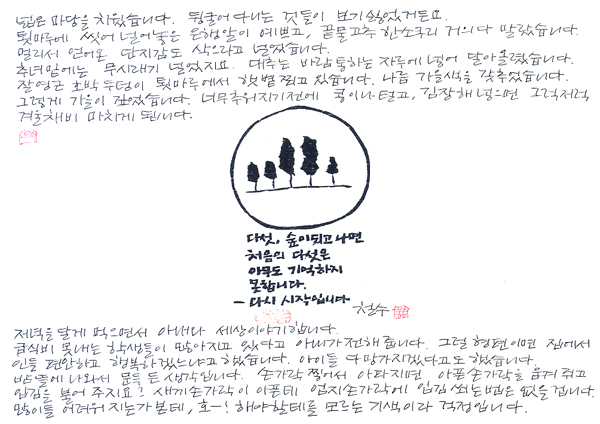 넓은 마당을 치웠습니다. 뒹굴어 다니는 것들이 보기 싫었거든요.
툇마루에 씻어 널어놓은 은행알이 예쁘고, 끝물고추 한소쿠리 거의 다 말랐습니다.
멀리서 얻어온 단지감도 삭으라고 넣었습니다.
추녀밑에는 무시래기 널었지요. 대추는 바람통하는 자루에 넣어 달아올렸습니다.
잘영근 호박 두덩이 툇마루에서 햇볕 쬐고 있습니다. 나름 가을색을 갖추었습니다.
그렇게 가을이 깊었습니다. 너무 추워지기전에 콩이나 털고, 김장해 넣으면 그럭저럭
겨울채비 마치게 됩니다.
다섯, 숲이되고나면
처음의 다섯은
아무도 기억하지
못합니다.
– 다시 시작입니다
철수
저녁을 달게 먹으면서 아내와 세상이야기합니다.
급식비 못내는 학생들이 많아지고 있다고 아내가 전해줍니다. 그럴 형편이면 집에서
인들 편안하고 행복하겠느냐고 했습니다. 아이들 다 망가지겠다고도 했습니다.
밖에 나와서 문득 든 생각입니다. 손가락 찧어서 아파지면, 아픈손가락을 움켜쥐고
입김을 불어 주지요? 새끼손가락이 아픈데 엄지손가락에 입김 쐬는법은 없을겁니다.
많이들 어려워지는가본데, 호–! 해야할데를 모르는 기색이라 걱정입니다.